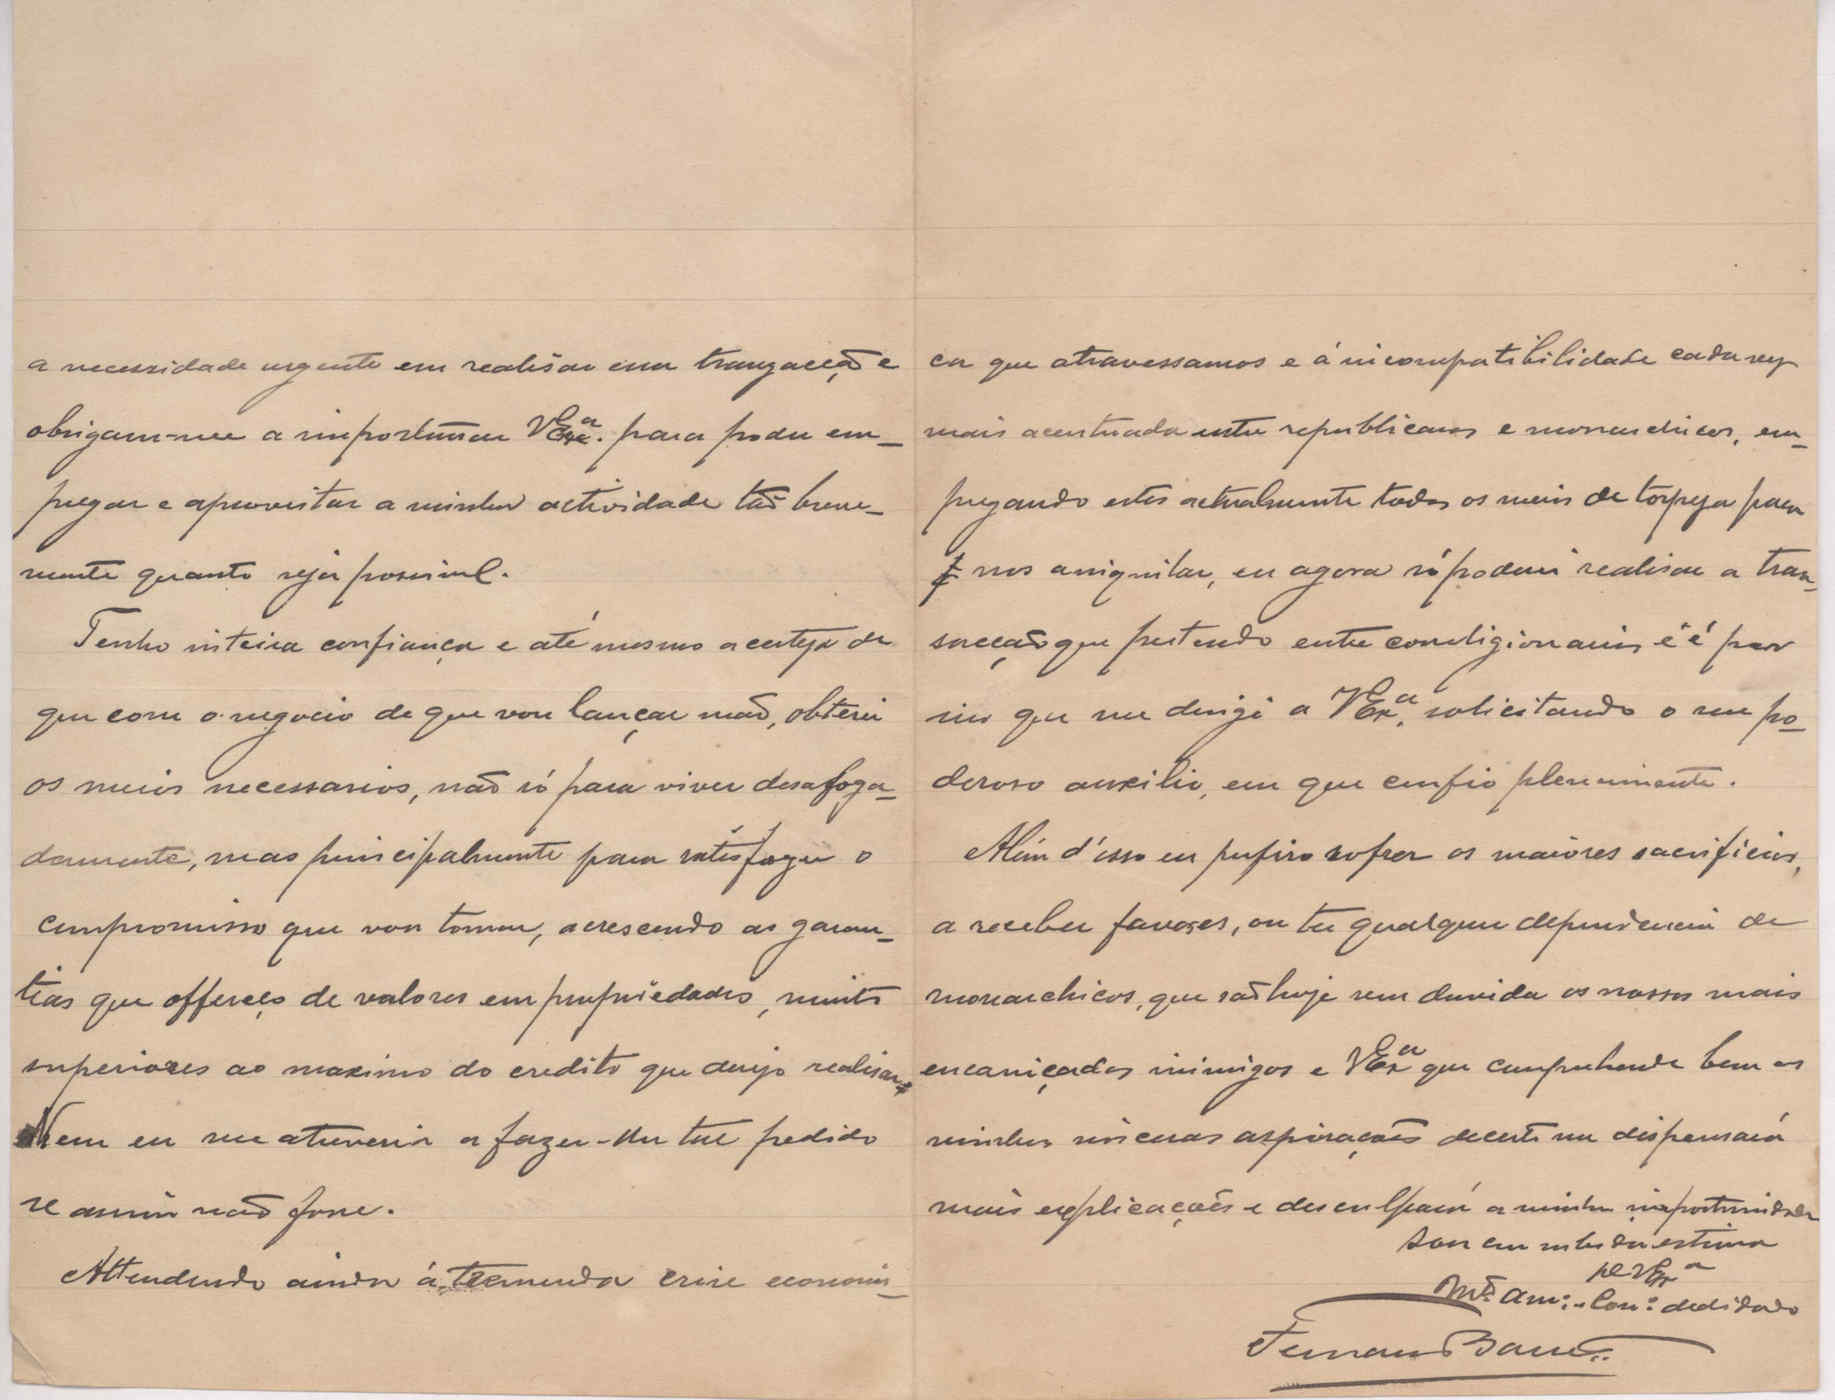 a necessidade urgente em realisar essa tranzacção e
obrigam-me a importunar VExª. para poder em-
pregar e aproveitar a minha actividade tão breve-
mente quanto seja possivel.
Tenho inteira confiança e até mesmo a certeza de
que com o negocio de que vou lançar mão, obterei
os meios necessarios, não só para viver desafoga-
damente, mas principalmente para satisfazer o
compromisso que vou tomar, acrescendo as garan-
tias que offereço de valores em propriedades, muito
superiores ao maximo do credito que desejo realisar.
Nem eu me atreveria a fazer-lhe tal pedido
se assim não fosse.
Attendendo ainda á tremenda crise economi-
ca que atravessamos e á incompatibilidade cada vez
mais acentuada entre republicanos e monarchicos, em-
pregando estes actualmente todos os meios de torpeza para
nos aniquilar, eu agora só poderei realisar a tran-
sacção que pretendo entre correligionarios e é por
isso que me dirijo a VExª. solicitando o seu po-
deroso auxilio, em que confio plenamente.
Além d'isso eu prefiro sofrer os maiores sacrificios,
a receber favores, ou ter qualquer dependencia de
monarchicos, que são hoje sem duvida os nossos mais
encarniçados inimigos e VExª que comprehende bem as
minhas sinceras aspirações decerto me dispensará
mais explicações e desculpará a minha importunidade
Sou com subida estima
de VExª
Mtº Amº. e Corº. dedicado